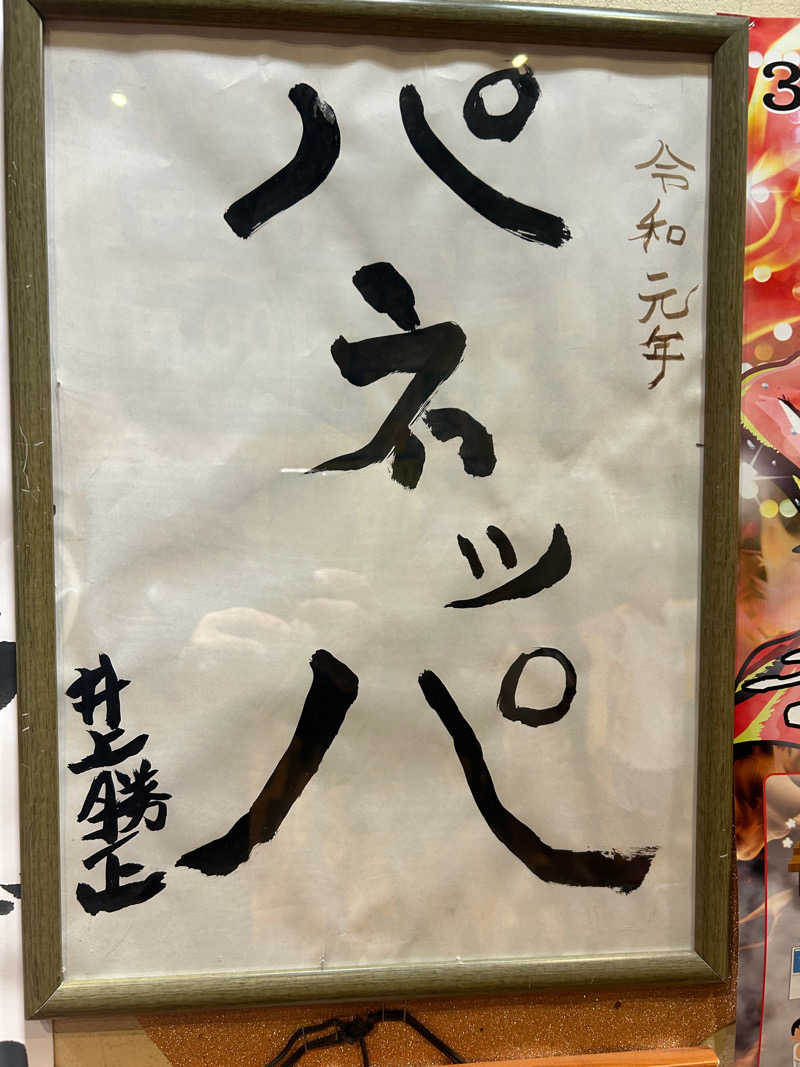 令和元年
パネッパ
井上勝正
3